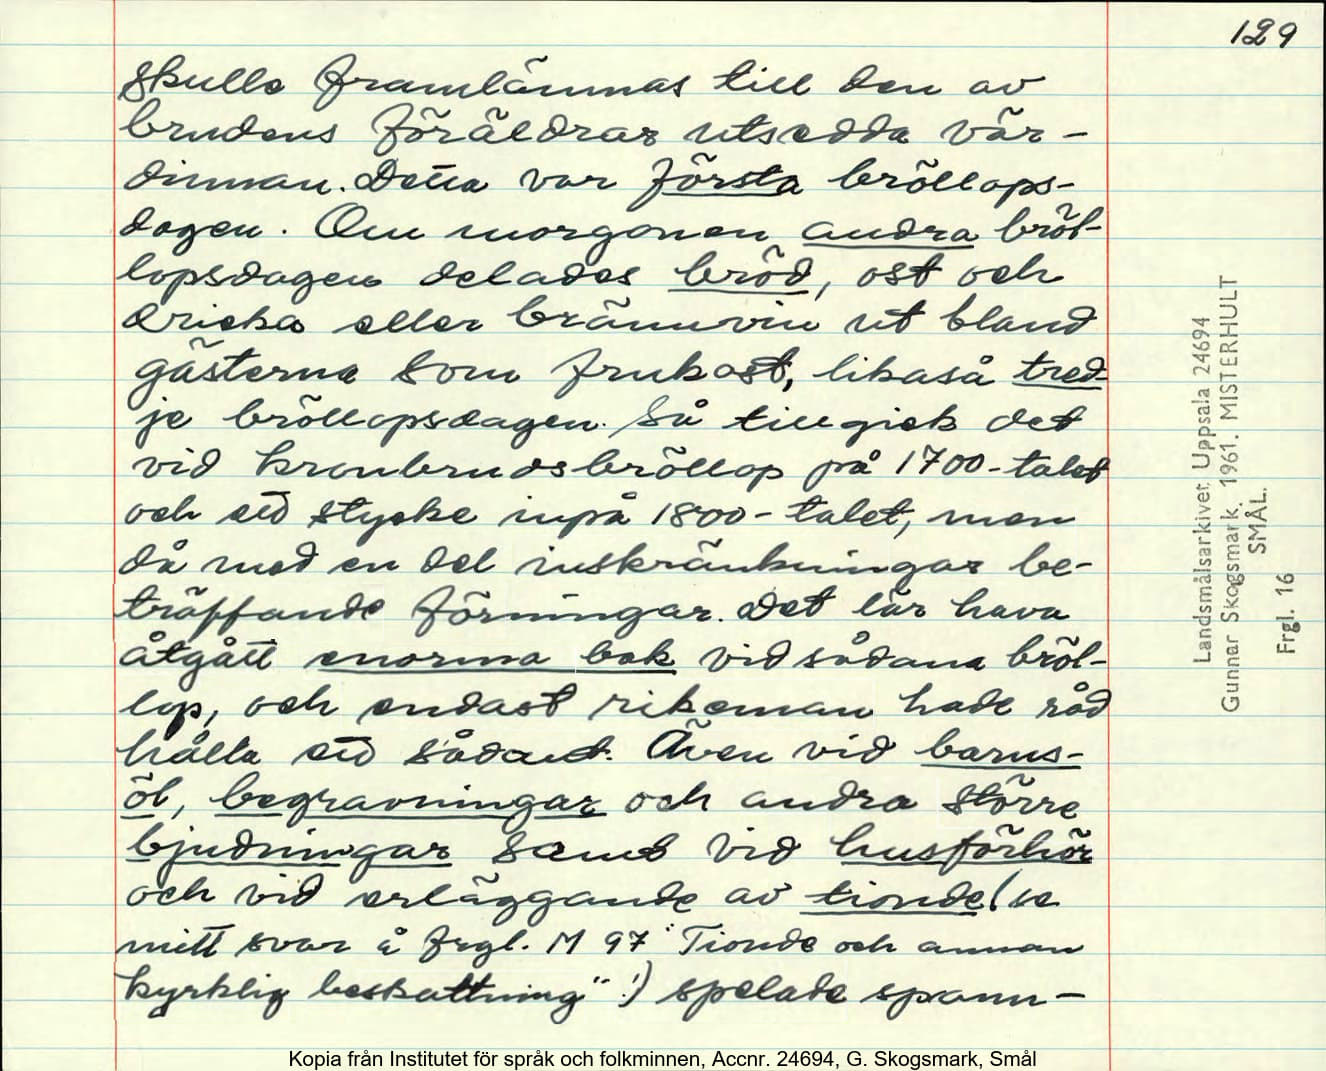 129
skulle framlämnas till den av
brudens föräldrar utsedda vär-
dinnan. Detta var första bröllops-
dagen. Om morgonen andra bröl-
lopsdagen delades bröd, ost och
dricka eller brännvin ut bland
gästerna som frukost, likaså tred-
je bröllopsdagen. Så tillgick det
vid kronbrudsbröllop på 1700-talet
och ett stycke inpå 1800-talet, men
då med en del inskränkningar be-
träffande förningar. Det lär hava
åtgått enorma bak vid sådana bröl-
lop, och endast rikeman hade råd
hålla ett sådant. Även vid barns-
öl, begravningar och andra större
bjudningar samt vid husförhör
och vid erläggande av tionde (se
mitt svar å frgl. M 97 "Tionde och annan
kyrklig beskattning"!) spelade spann-
Landsmålsarkivet Uppsala 24694
Gunnar Skogsmark. 1961. MISTERHULT
SMÅL.
Frgl. 16
Kopia från Institutet för språk och folkminnen, Accnr. 24694, G. Skogsmark, Smål